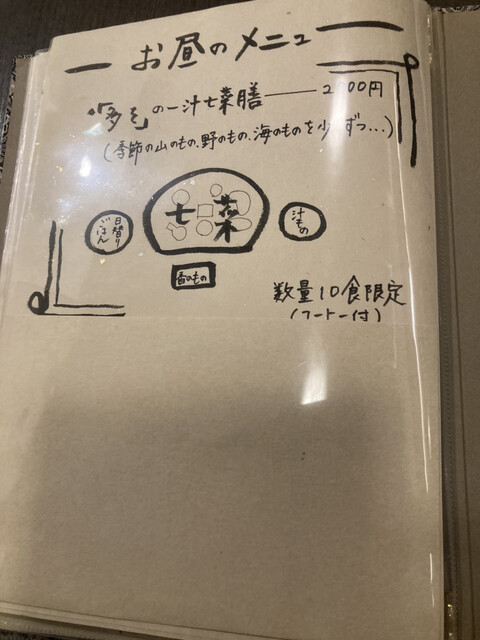 お昼のメニュー
の一汁七菜膳
(季節の山のもの、野のもの、海のものを少しずつ...)
七菜
日替り
ごはん
汁もの
香のもの
数量10食限定
(コーヒー付)